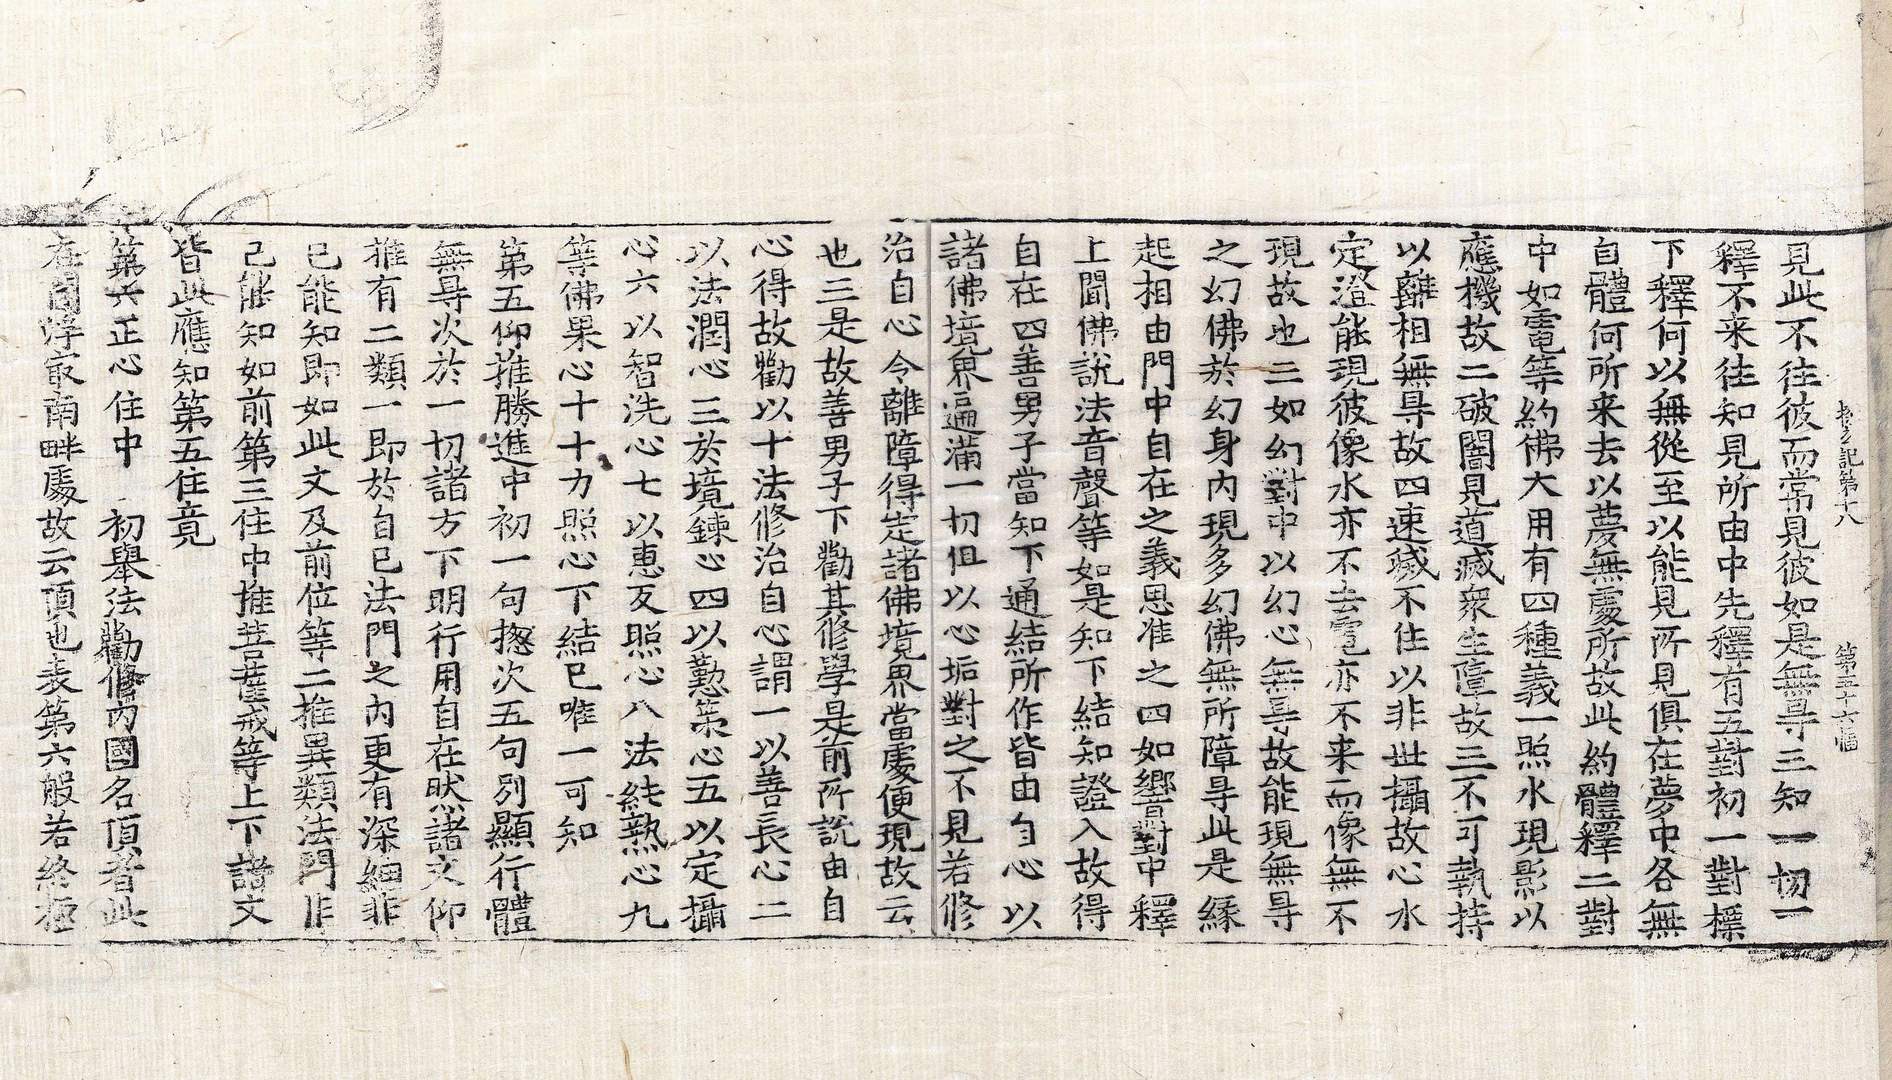 探玄記第十八　第五十六幅
見此不往彼而常見彼如是無㝵三知一切一
釋不来往知見所由中先釋有五對初一對標
下釋何以無從至以能見所見俱在夢中各無
自體何所来去以夢無處所故此約體釋二對
中如電等約佛大用有四種義一照水現影以
應機故二破闇見道滅衆生障故三不可執持
以離相無㝵故四速滅不住以非世攝故心水
定澄能現彼像水亦不去電亦不来而像無不
現故也三如幻對中以幻心無㝵故能現無㝵
之幻佛於幻身內現多幻佛無所障㝵此是緣
起相由門中自在之義思准之四如響對中釋
上聞佛說法音聲等如是知下結知證入故得
自在四善男子當知下通結所作皆由自心以
諸佛境界遍滿一切但以心垢對之不見若修
治自心令離障得定諸佛境界當處便現故云
也三是故善男子下勸其修學是前所說由自
心得故勸以十法修治自心謂一以善長心二
以法潤心三於境鍊心四以懃策心五以定攝
心六以智洗心七以惠友照心八法純熟心九
等佛果心十十力照心下結已唯一可知
第五仰推勝進中初一句揔次五句別顯行體
無㝵次於一切諸方下明行用自在然諸文仰
推有二類一即於自已法門之內更有深細非
已能知即如此文及前位等二推異類法門非
己能知如前第三住中推菩薩戒等上下諸文
皆此應知第五住竟
第六正心住中　初舉法勸修內國名頂者此
在閻浮㝡南畔處故云頂也表第六般若終極